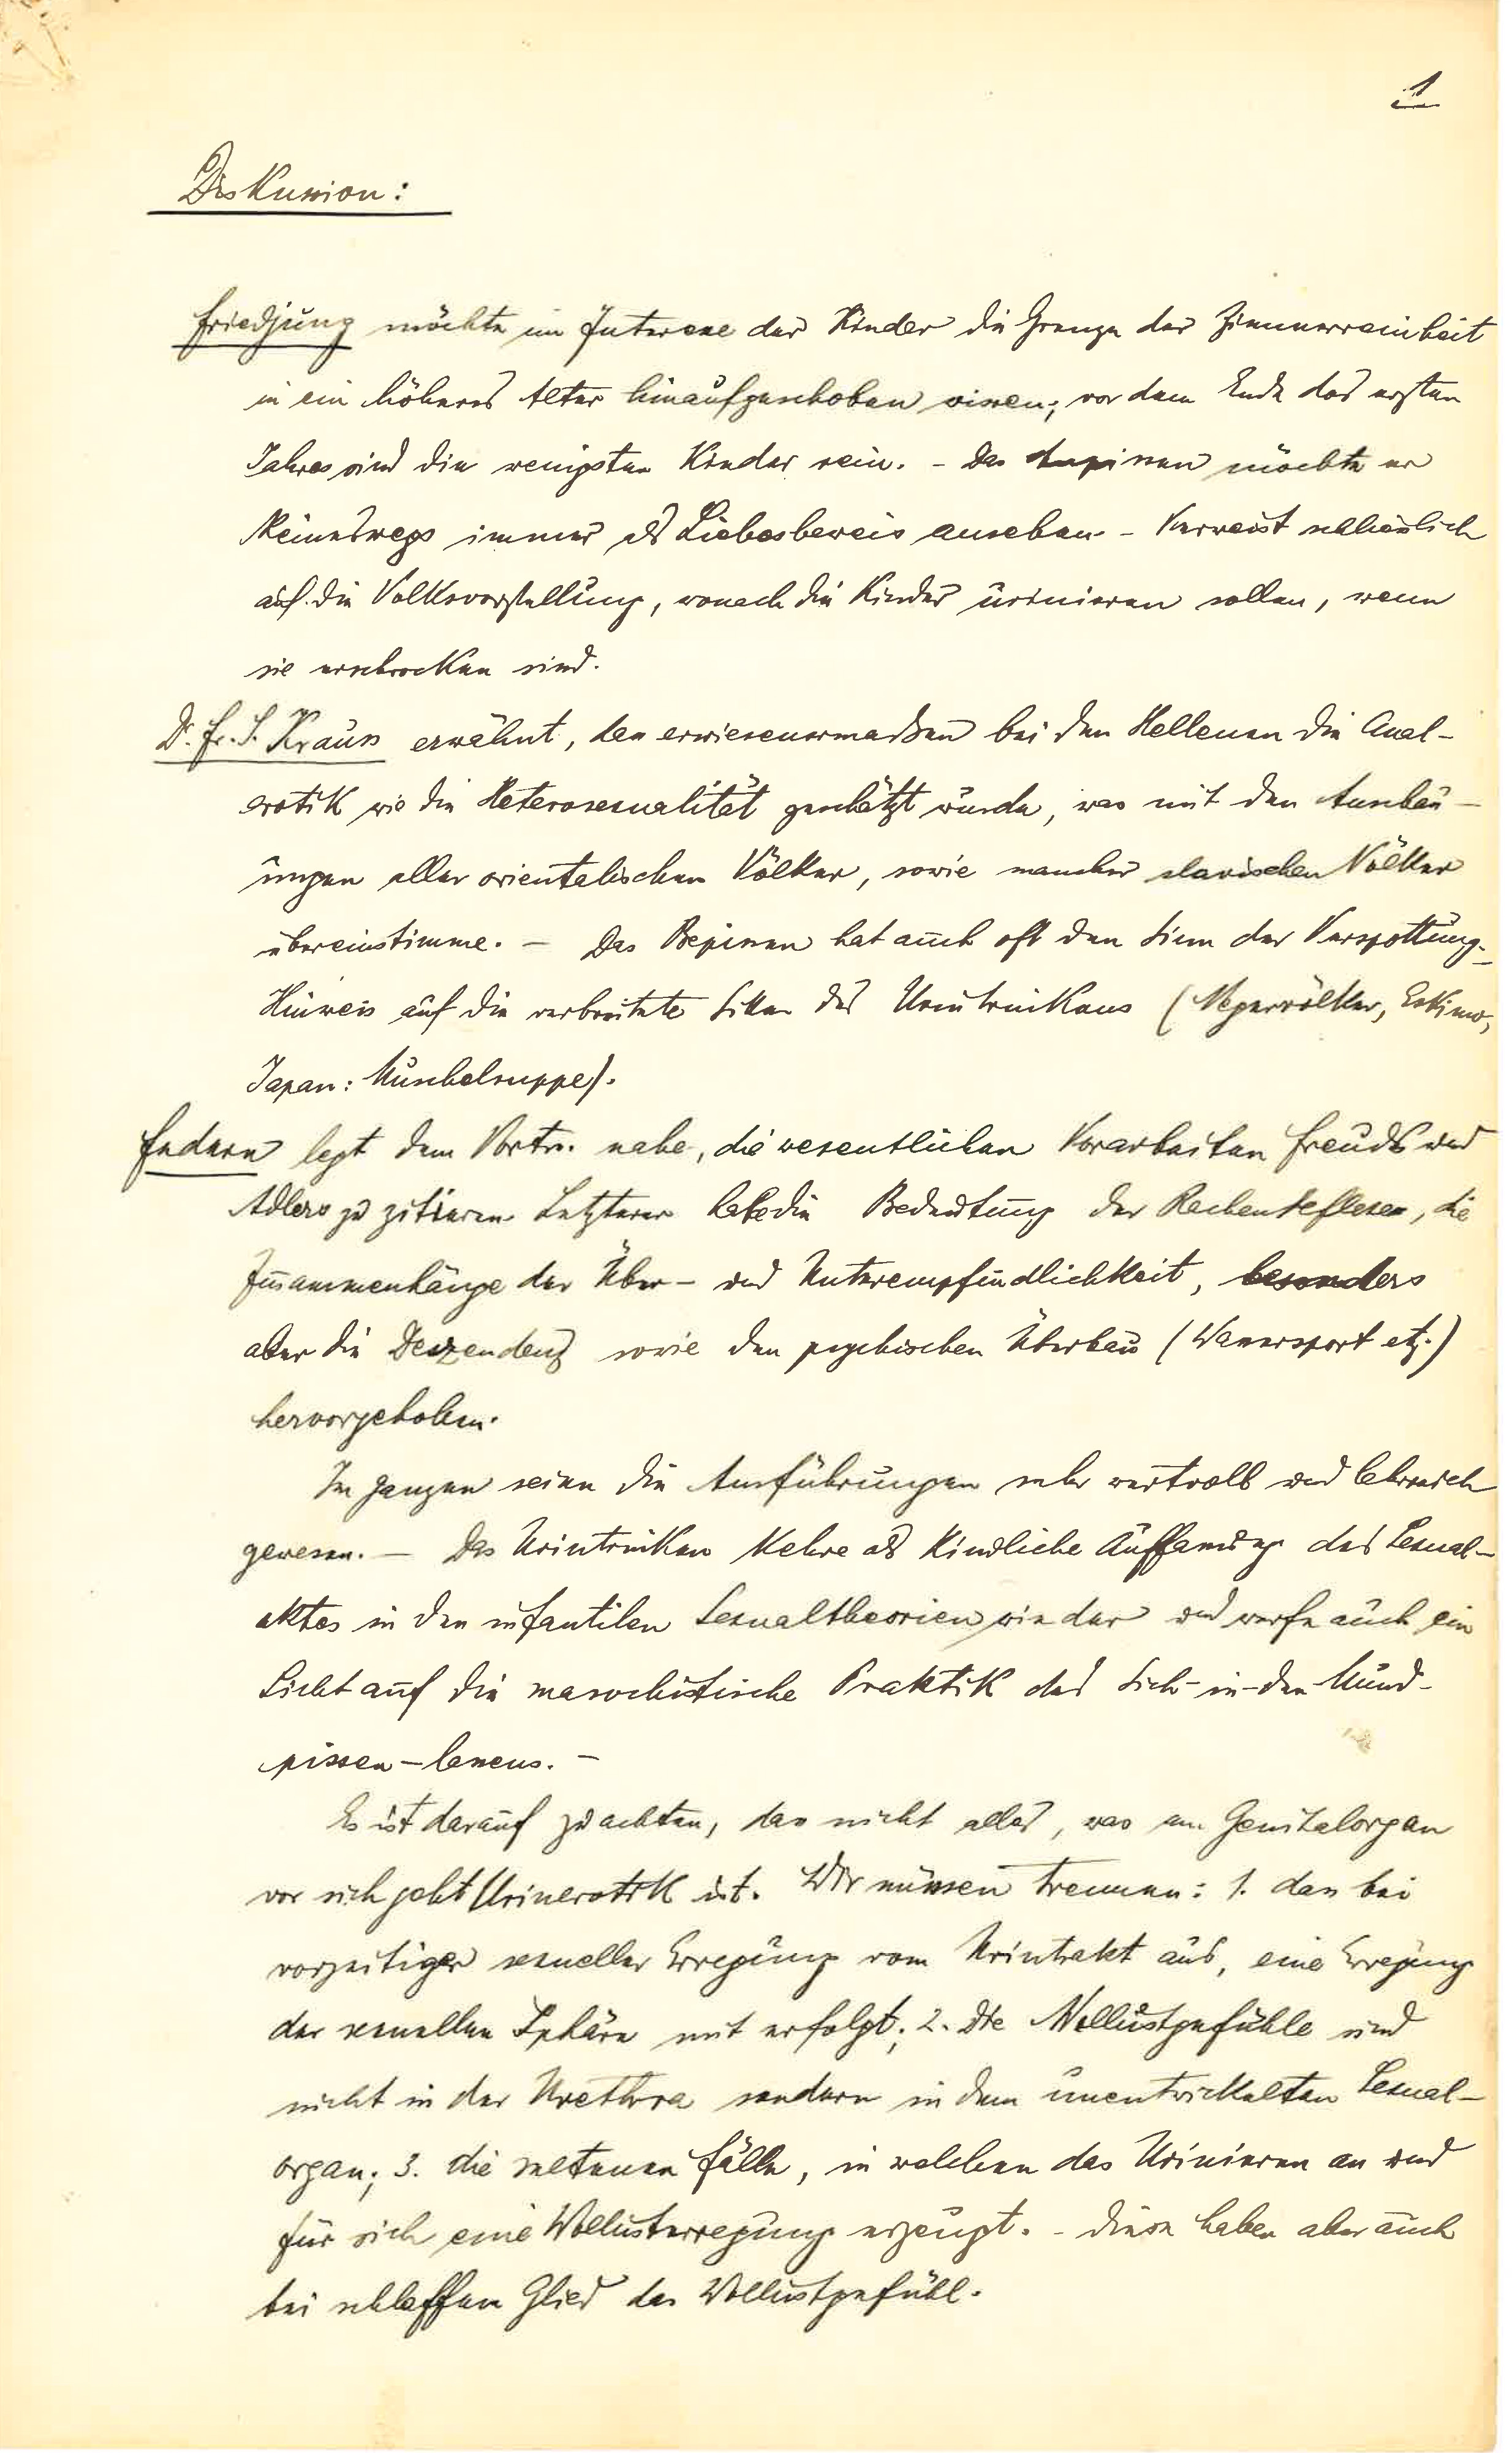 1
Diskussion:
Friedjung möchte im Interesse der Kinder die Grenze der Zimmerreinheit
in ein höheres Alter hinaufgeschoben wissen; vor dem Ende des ersten
Jahres sind die wenigsten Kinder rein. – Das Anpissen möchte er
keineswegs immer als Liebesbeweis ansehen. – Verweist schliesslich
auf die Volksvorstellung, wonach die Kinder urinieren sollen, wenn
sie erschrocken sind.
Dr. Fr. S. Krauss erwähnt, dass erwiesenermassen bei den Hellenen die Anal-
erotik wie die Heterosexualität geschätzt wurde, was mit den Anschau-
ungen aller orientalischen Völker, sowie mancher slavischen Völker
übereinstimme. – Das Bepissen hat auch oft den Sinn der Verspottung. –
Hinweis auf die verbreitete Sitte des Urintrinkens (Negervölker, Eskimo,
Japan: Muschelsuppe).
Federn legt dem Vortr. nahe, die wesentlichen Vorarbeiten Freuds und
Adlers zu zitieren. Letzterer habe die Bedeutung der Rachenreflexe, die
Zusammenhänge der Über- und Unterempfindlichkeit, besonders
aber die Deszendenz sowie den psychischen Überbau (Wassersport etz.)
hervorgehoben.
Im ganzen seien die Ausführungen sehr wertvoll und lehrreich
gewesen. – Das Urintrinken kehre als kindliche Auffassung des Sexual-
aktes in den infantilen Sexualtheorien wieder und werfe auch ein
Licht auf die masochistische Praktik des Sich-in-den-Mund-
pissen-lassens. –
Es ist darauf zu achten, dass nicht alles, was am Genitalorgan
vor sich geht Urinerotik ist. Wir müssen trennen: 1. dass bei
vorzeitiger sexueller Erregung vom Urintrakt aus, eine Erregung
der sexuellen Sphäre mit erfolgt; 2. Die Wollustgefühle sind
nicht in der Urethra sondern in dem unentwickelten Sexual-
organ; 3. die seltenen Fälle, in welchen das Urinieren an und
für sich eine Wollusterregung erzeugt. – Diese haben aber auch
bei schlaffem Glied das Wollustgefühl.